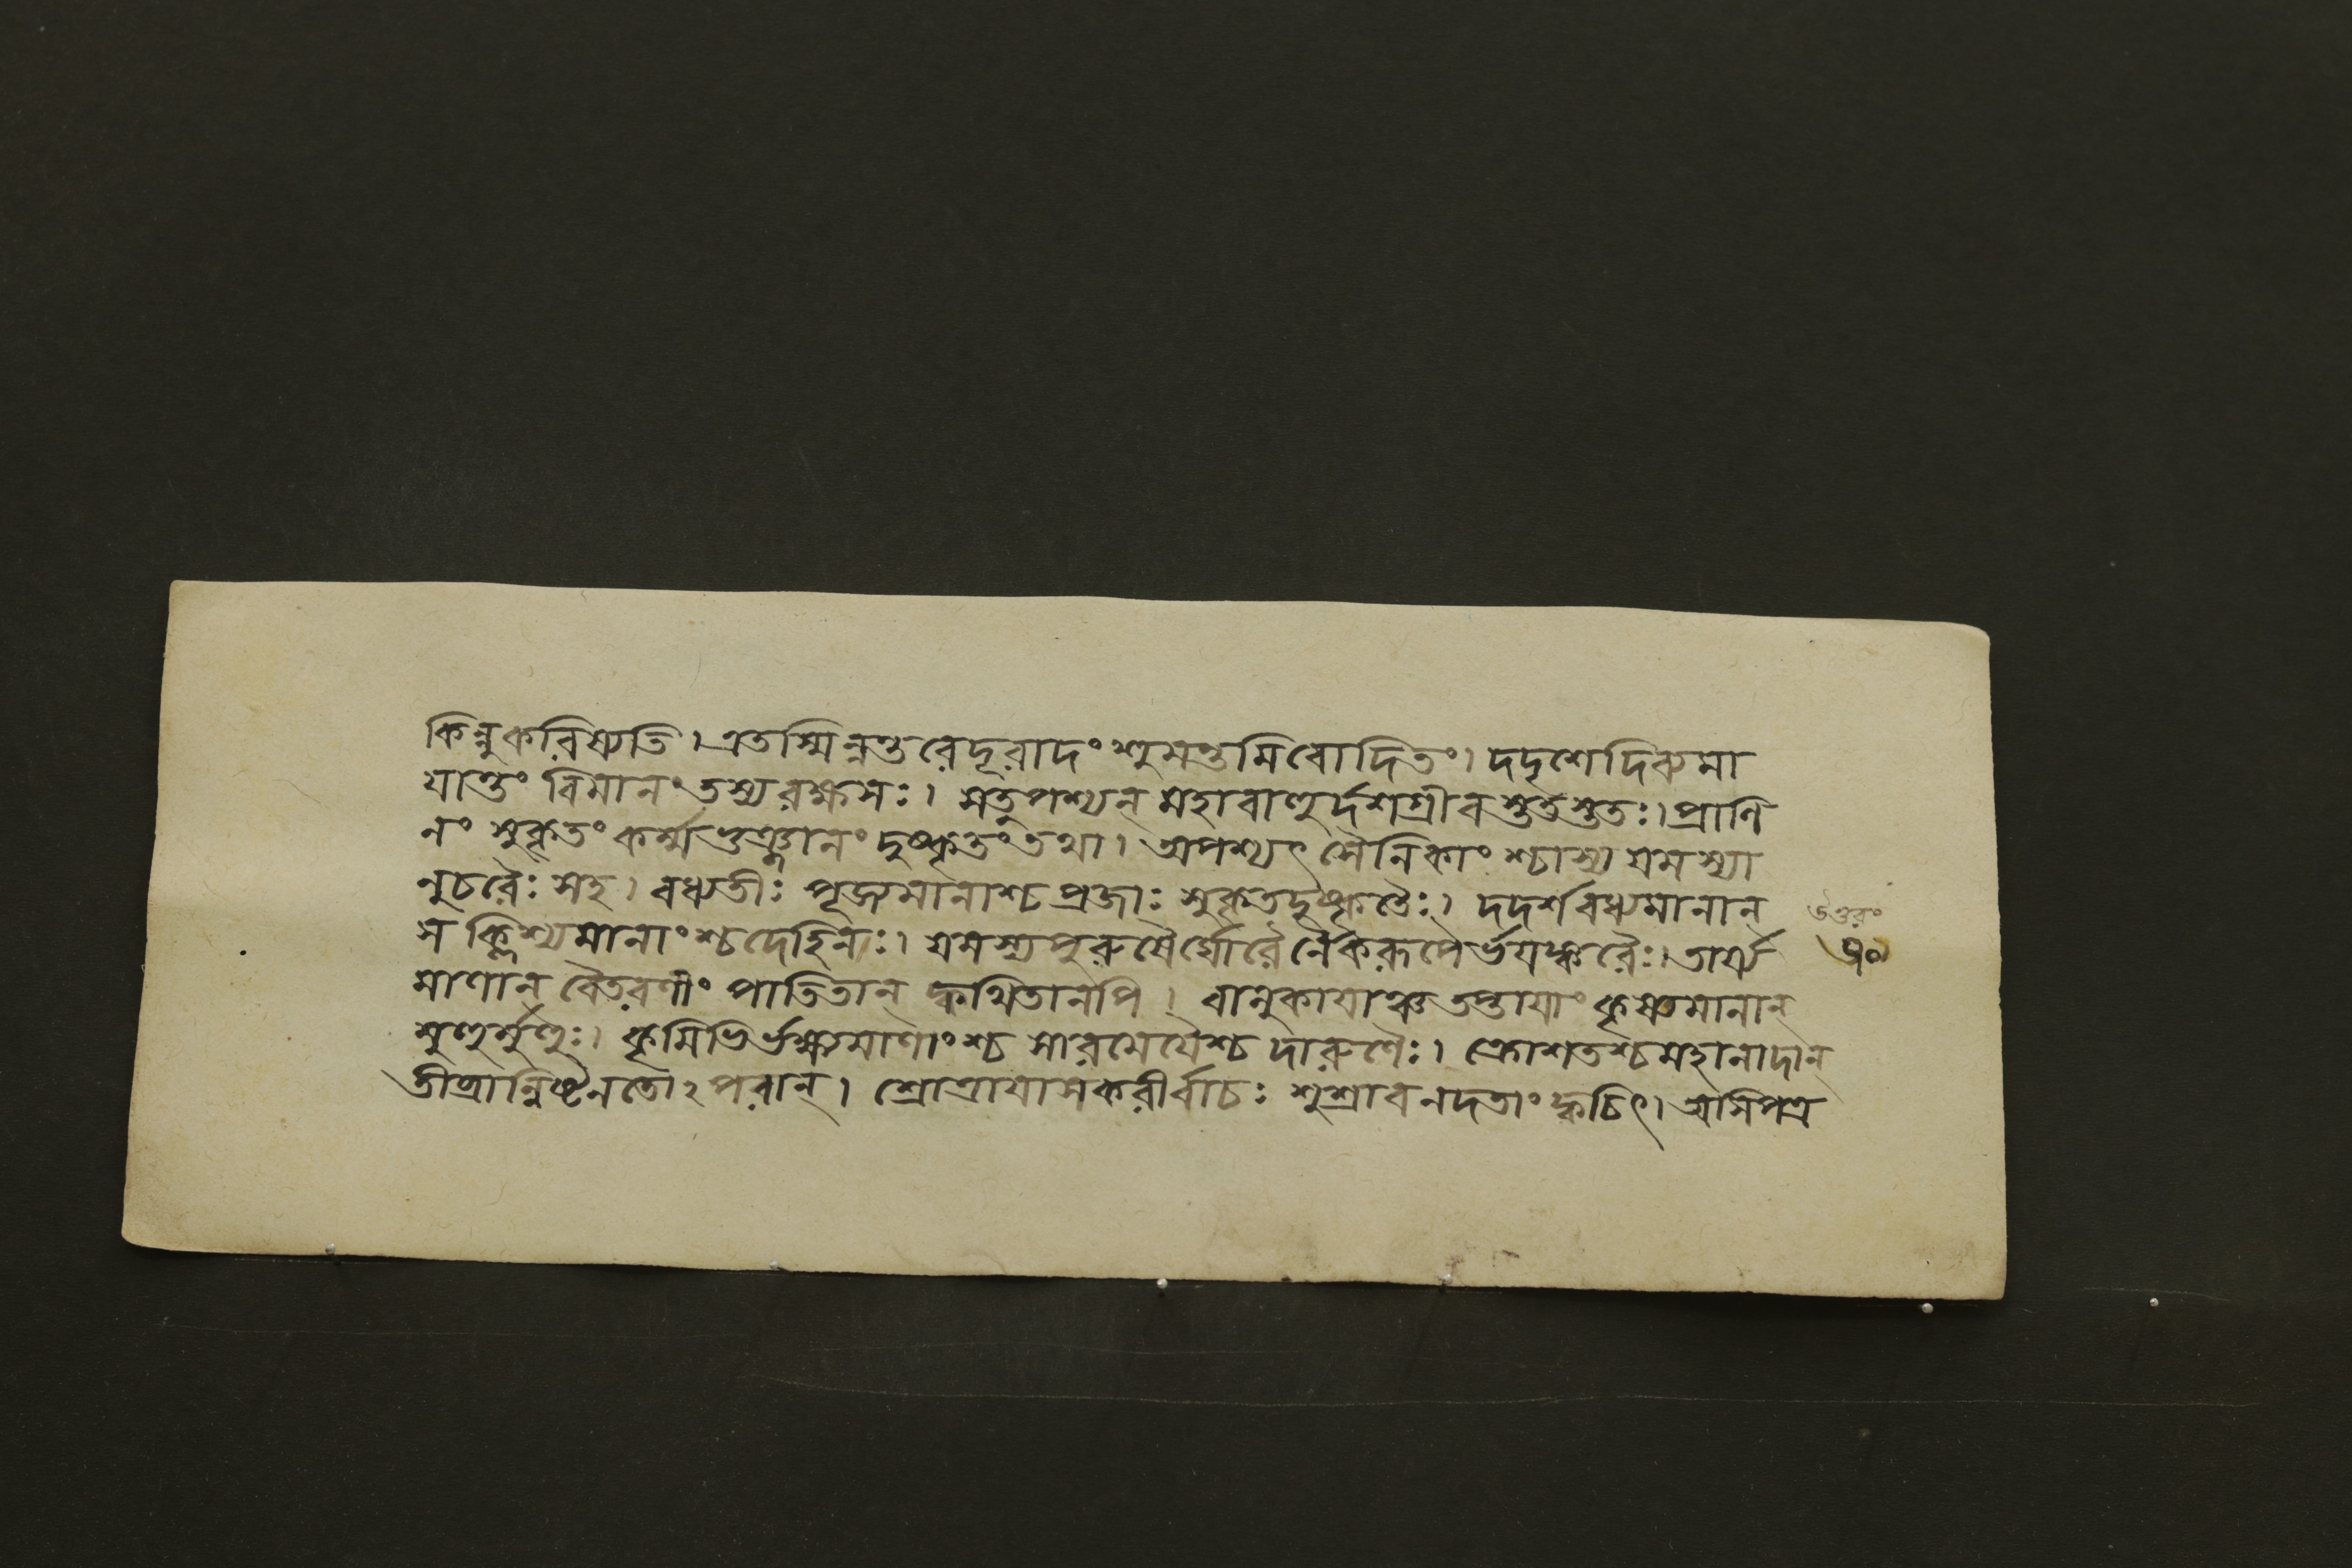 কিন্নুকরিষ্যতি। এতস্মিন্নন্তরেদূরাদংশুমন্তমিবোদিতং। দদৃশেদিব্যমা
যান্তং বিমানং তস্যরক্ষসঃ। সতুপশ্যন্ মহাবাহুর্দশগ্রীবস্ততস্ততঃ। প্রাণি
নং সুকৃতং কর্ম্মভুঞ্জানং দুষ্কৃতং তথা। অপশ্যৎ সৈনিকাংশ্চাস্য যমস্যা
নুচরৈঃ সহ। বধ্যতীঃ পূজ্যমানাশ্চ প্রজাঃ সুকৃতদুষ্কৃতৈঃ। দদর্শবধ্যমানান্
স ক্লিশ্যমানাংশ্চদেহিনঃ। যমস্যপুরুষৈর্ঘোরৈর্নৈকরূপৈর্ভয়ঙ্করৈঃ। তার্য্য
মাণান্ বৈতরণীং পাতিতান্ ক্বথিতানপি। বালুকাযাঞ্চতপ্তাযাং কৃষ্যমানান্
মুহুর্মুহুঃ। কৃমিভির্ভক্ষ্যমাণাংশ্চ সারমেযৈশ্চ দারুণৈঃ। ক্রোশতশ্চমহানাদান্
তীব্রান্নিষ্টনতোঽপরান্। শ্রোত্রাযাসকরীর্বাচঃ শুশ্রাবনদতাং ক্বচিৎ। অসিপত্র
উত্তরং